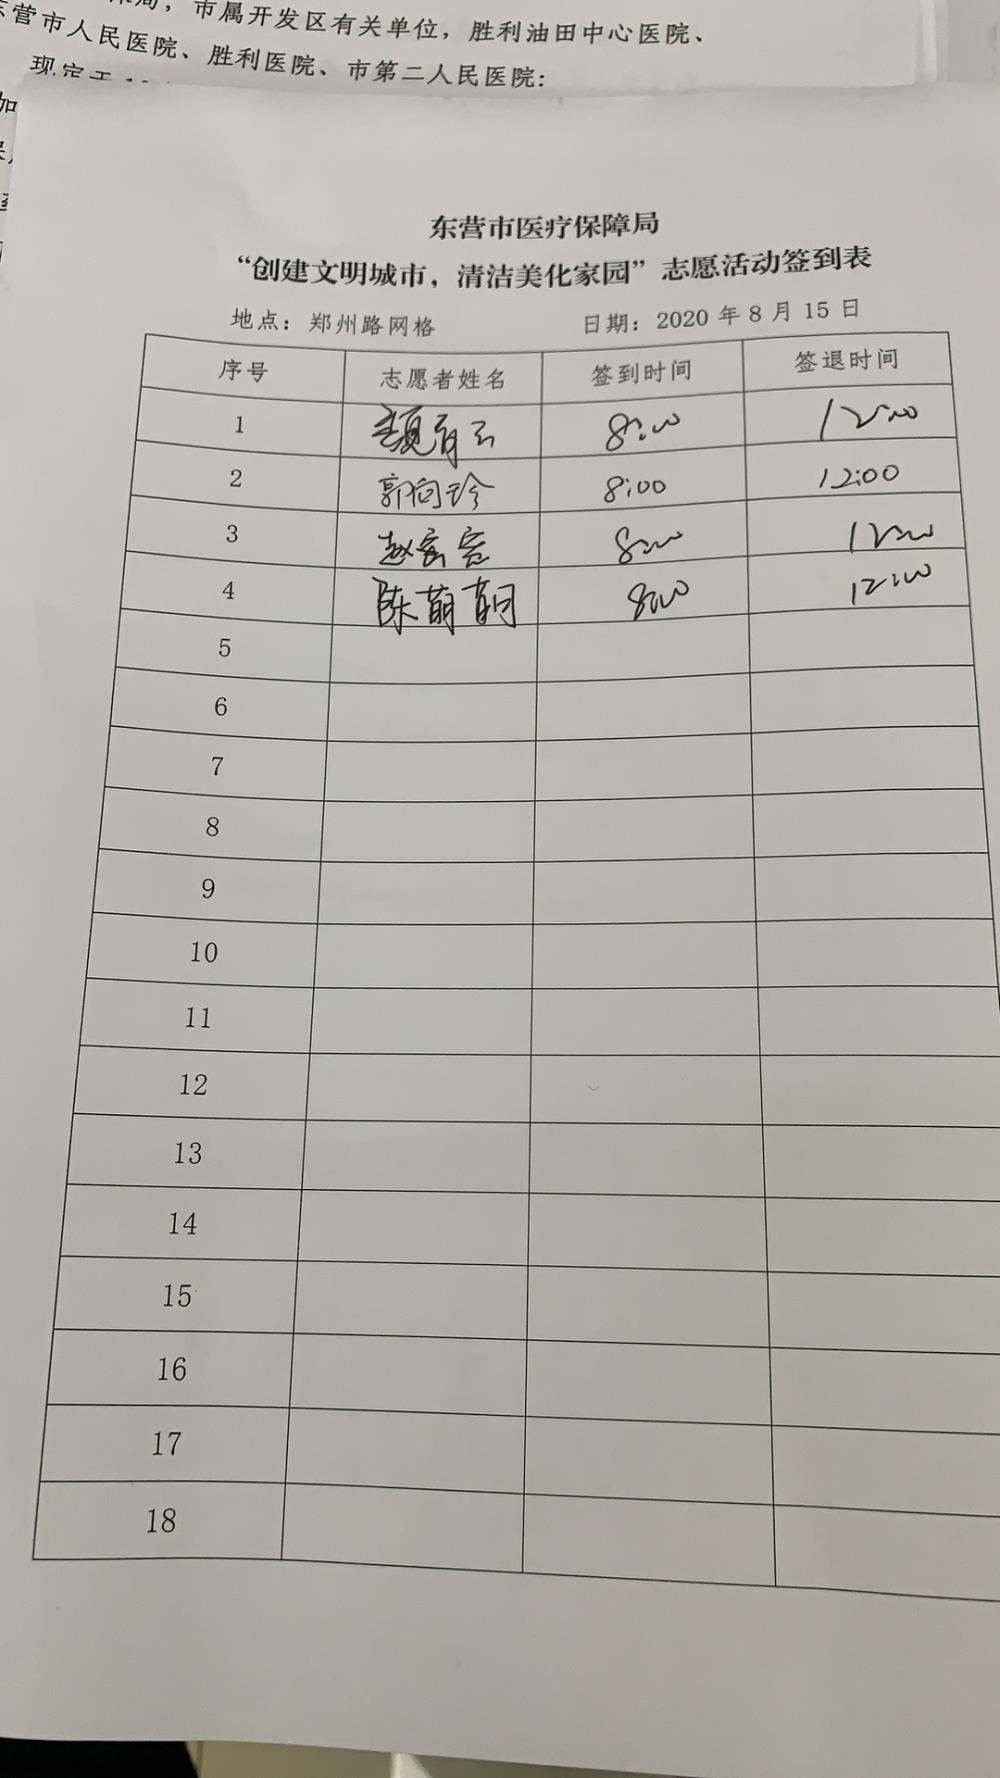 市属开发区有关单位，胜利油田中心医院、
东营市人民医院、胜利医院、市第二人民医院：
现定于
加
东营市医疗保障局
“创建文明城市，清洁美化家园”志愿活动签到表
地点：郑州路网格 日期：2020 年 8 月 15 日
序号 志愿者姓名 签到时间 签退时间
1 8:00 12:00
2 郭向珍 8:00 12:00
3 赵 8:00 12:00
4 陈萌萌 8:00 12:00
5
6
7
8
9
10
11
12
13
14
15
16
17
18